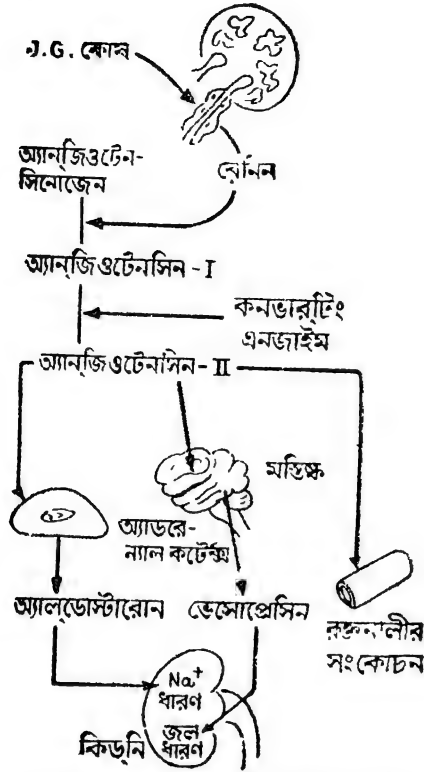 J.G. কোষ
অ্যান্‌জিওটেন-
সিনোজেন
রেনিন
অ্যান্‌জিওটেনসিন - I
কনভার্‌টিং
এনজাইম
অ্যান্‌জিওটেনসিন - II
মস্তিষ্ক
অ্যাডরে-
ন্যাল কর্টেক্স
অ্যাল্‌ডোস্টারোন
ভেসোপ্রেসিন
রক্তনালীর
সংকোচন
Na+
ধারণ
জল
ধারণ
কিড্‌নি